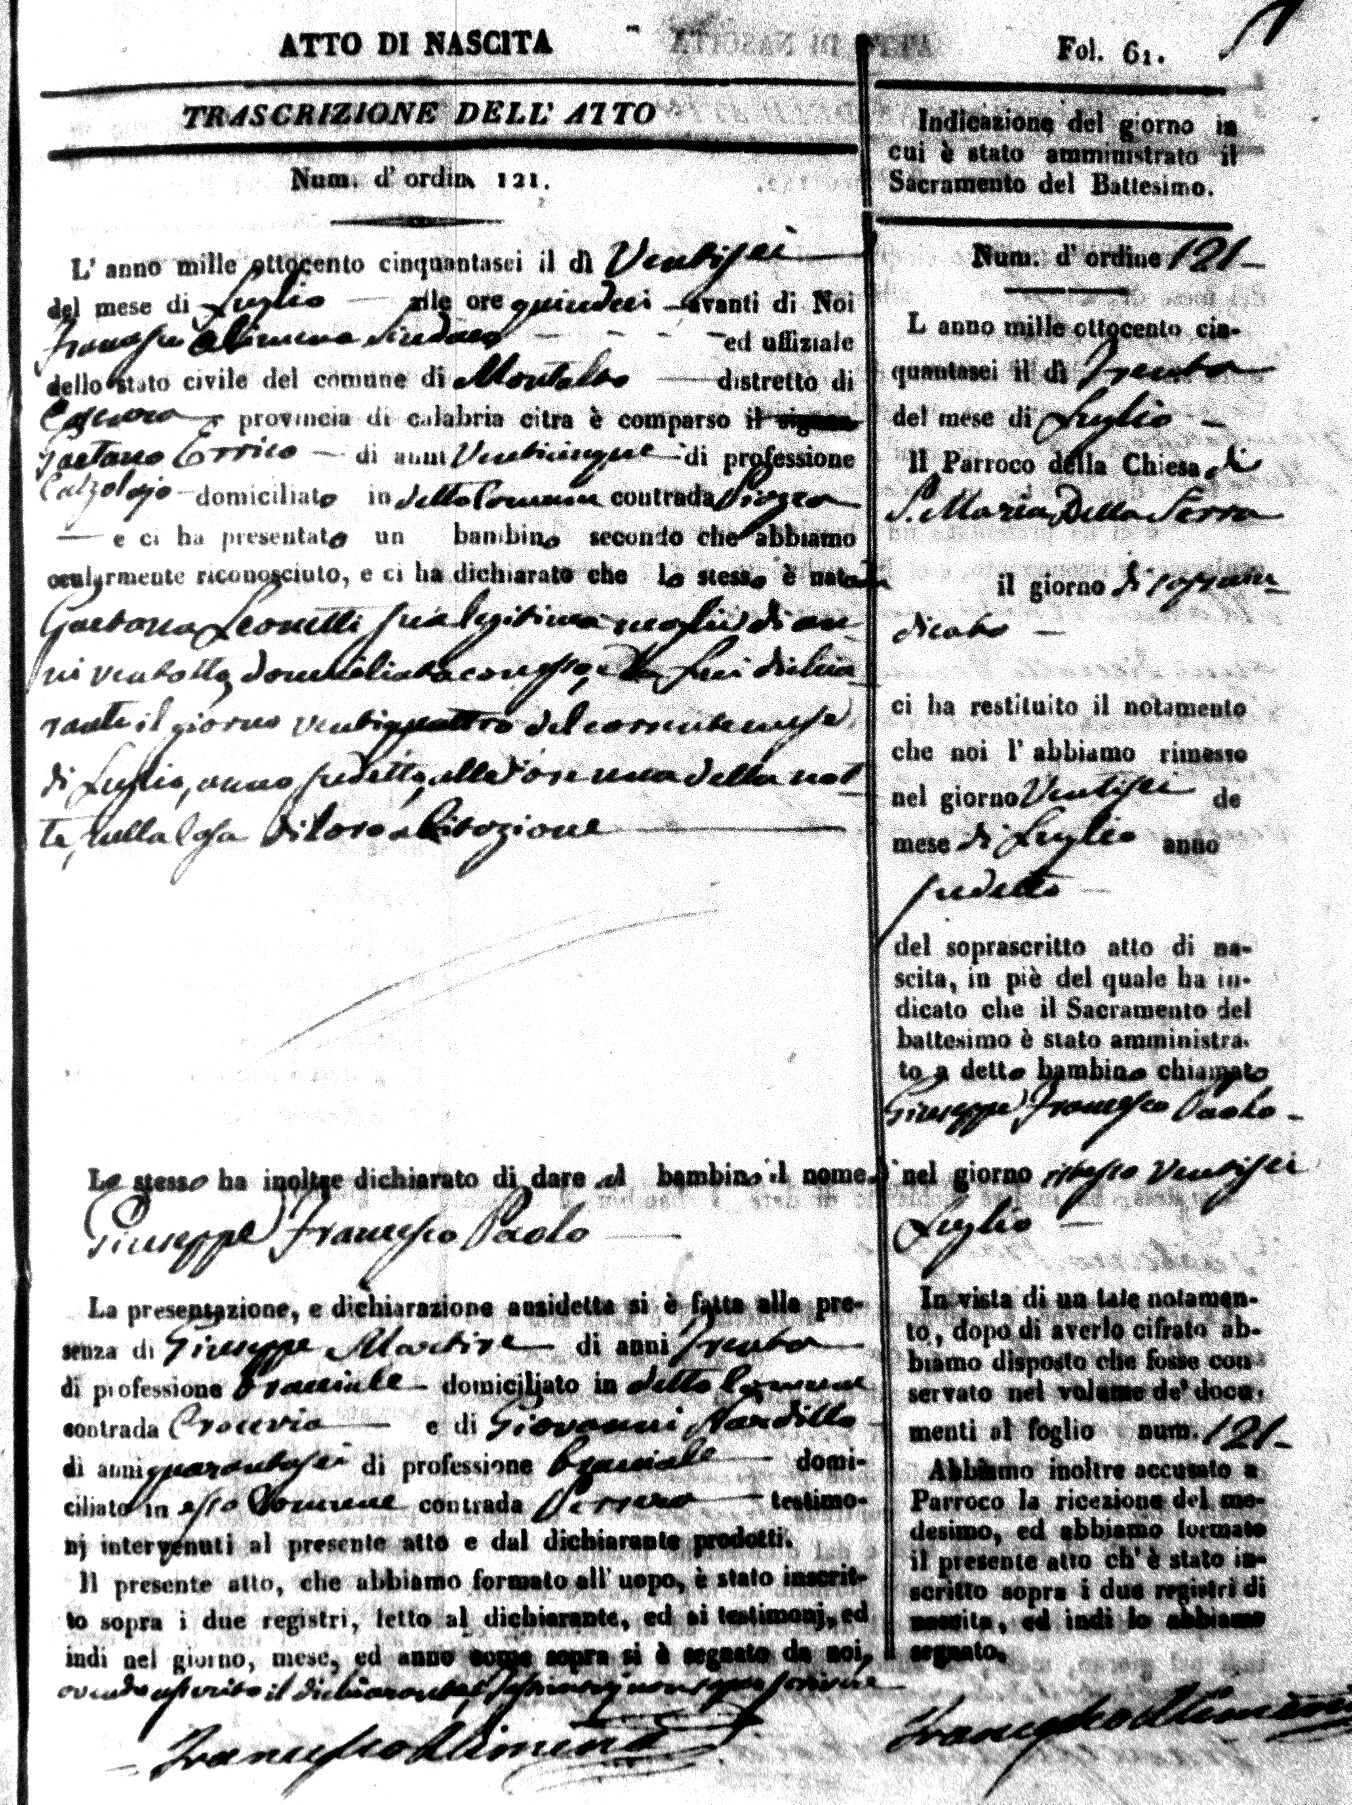 ATTO DI NASCITA
TRASCRIZIONE DELL' ATTO
Num. d' ordin 121.
L' anno mille ottocento cinquantasei il dì Ventisei
del mese di Luglio alle ore quindici avanti di Noi
Francesco Alimena Sindaco ed uffiziale
dello stato civile del comune di Montalto distretto di
Cosenza provincia di calabria citra è comparso il signor
Gaetano Errico di anni Venticinque di professione
Calzolajo domiciliato in detto Comune contrada Piazza
e ci ha presentato un bambino secondo che abbiamo
ocularmente riconosciuto, e ci ha dichiarato che lo stesso è nato da
Gaetana Leonetti sua legitima moglie di an-
ni ventotto, domiciliata con esso, e da Lui dichia-
rante il giorno ventiquattro del corrente mese
di Luglio, anno sudetto, alle ore una della not-
te, nella Casa di loro abitazione
Lo stesso ha inoltre dichiarato di dare al bambino il nome di
Giuseppe Francesco Paolo
La presentazione, e dichiarazione anzidetta si è fatta alla pre-
senza di Giuseppe Martire di anni Trenta
di professione Braciale domiciliato in detto Comune
contrada e di Giovanni Nardillo
di anni quarantasei di professione Braciale domi-
ciliato in esso Comune contrada testimo-
nj intervenuti al presente atto e dal dichiarante prodotti.
Il presente atto, che abbiamo formato all' uopo, è stato inscrit-
to sopra i due registri, letto al dichiarante, ed ai testimonj, ed
indi nel giorno, mese, ed anno come sopra si è segnato da noi,
avendo asserito il dichiarante, e testimonj non saper scrivere
Francesco Alimena
Fol. 61.
Indicazione del giorno in
cui è stato amministrato il
Sacramento del Battesimo.
Num. d' ordine 121
L anno mille ottocento cin-
quantasei il dì Trenta
del mese di Luglio
Il Parroco della Chiesa di
S. Maria Della Serra
il giorno di sopra in-
dicato
ci ha restituito il notamento
che noi l' abbiamo rimesso
nel giorno Ventisei de
mese di Luglio anno
sudetto
del soprascritto atto di na-
scita, in piè del quale ha in-
dicato che il Sacramento del
battesimo è stato amministra-
to a detto bambino chiamato
Giuseppe Francesco Paolo
nel giorno istesso Ventisei
Luglio
In vista di un tale notamen-
to, dopo di averlo cifrato ab-
biamo disposto che fosse con
servato nel volume de' docu-
menti al foglio num. 121
Abbiamo inoltre accusato a
Parroco la ricezione del me-
desimo, ed abbiamo formato
il presente atto ch' è stato in-
scritto sopra i due registri di
nascita, ed indi lo abbiamo
segnato.
Francesco Alimena